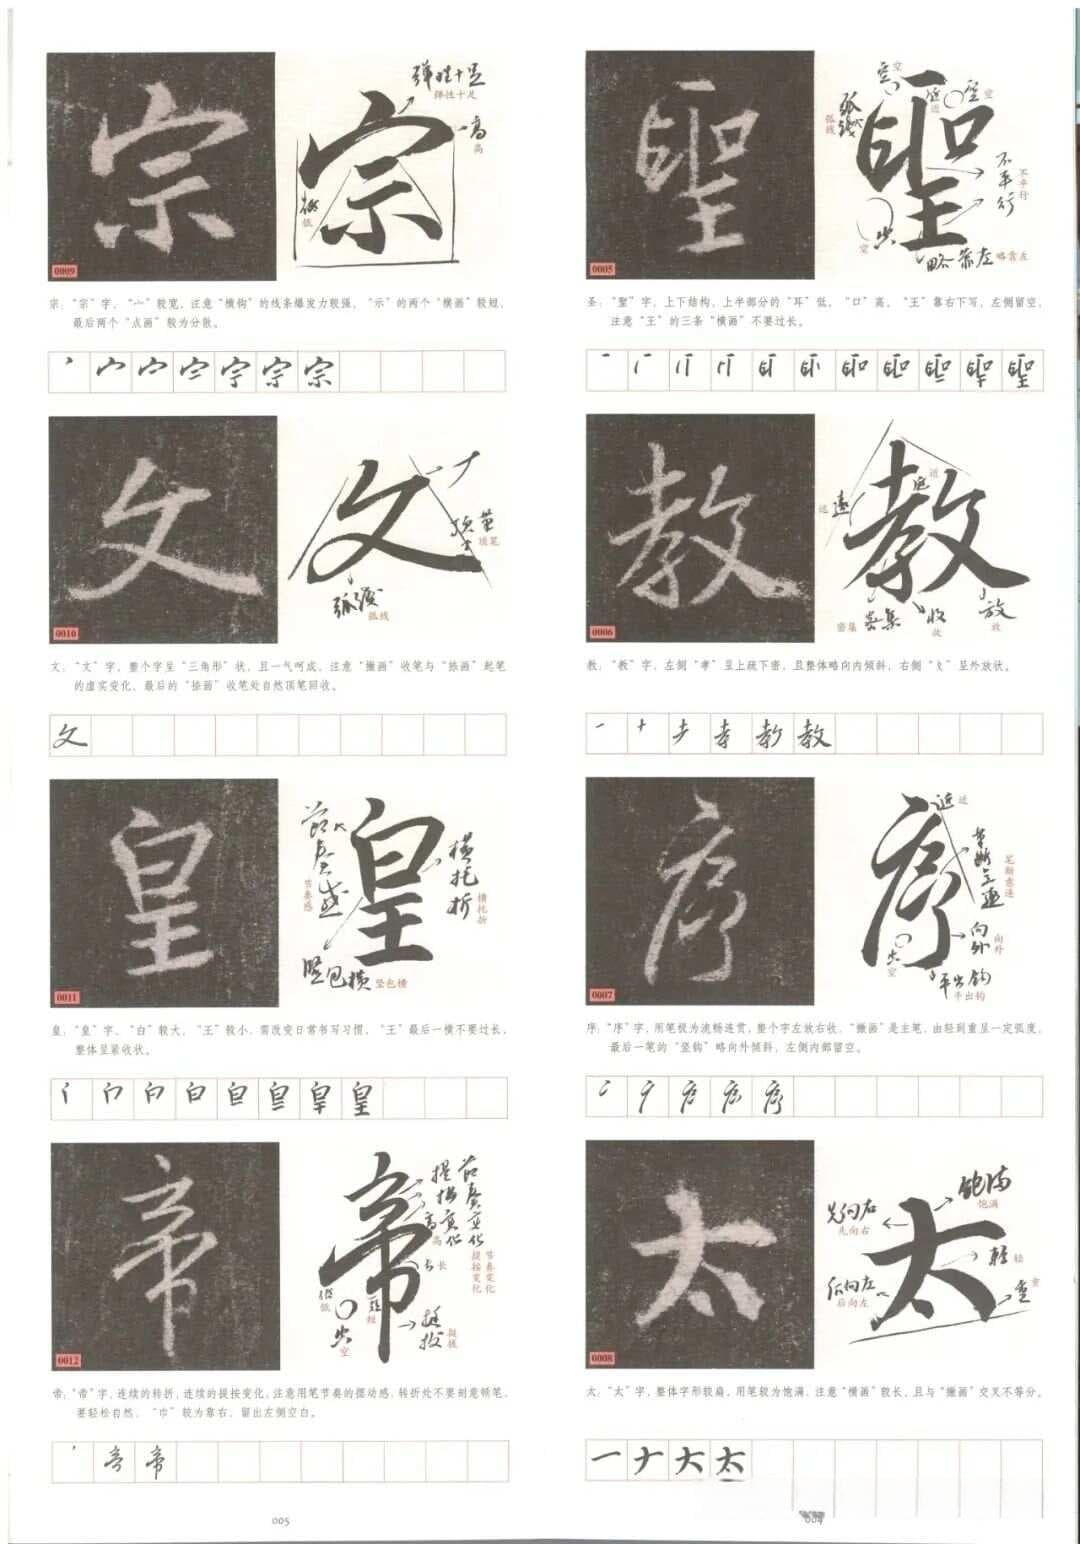 宗
弹性十足
弹性十足
高
高
低
低
0009
宗：“宗”字，“宀”较宽，注意“横钩”的线条爆发力较强，“示”的两个“横画”较短，
最后两个“点画”较为分散。
文
顶笔
顶笔
弧线
弧线
0010
文：“文”字，整个字呈“三角形”状，且一气呵成，注意“撇画”收笔与“捺画”起笔
的虚实变化，最后的“捺画”收笔处自然顶笔回收。
文
皇
节奏感
节奏感
横托折
横托折
竖包横
竖包横
0011
皇：“皇”字，“白”较大，“王”较小，需改变日常书写习惯，“王”最后一横不要过长，
整体呈紧收状。
帝
提按变化
提按变化
节奏变化
节奏变化
高
高
长
长
低
低
空
空
短
短
挺拔
挺拔
0012
帝：“帝”字，连续的转折，连续的提按变化，注意用笔节奏的摆动感，转折处不要刻意顿笔，
要轻松自然，“巾”较为靠右，留出左侧空白。
005
聖
空
空
弧线
弧线
近
近
空
空
不平行
不平行
空
空
略靠左
略靠左
0005
圣：“聖”字，上下结构，上半部分的“耳”低，“口”高，“王”靠右下写，左侧留空，
注意“王”的三条“横画”不要过长。
教
近
近
远
遠
密集
密集
收
收
放
放
0006
教：“教”字，左侧“孝”呈上疏下密，且整体略向内倾斜，右侧“攵”呈外放状。
序
近
近
笔断意连
笔断意连
向外
向外
空
空
平出钩
平出钩
0007
序：“序”字，用笔极为流畅连贯，整个字左放右收，“撇画”是主笔，由轻到重呈一定弧度，
最后一笔的“竖钩”略向外倾斜，左侧内部留空。
太
饱满
饱满
先向右
先向右
轻
輕
后向左
后向左
重
重
0008
太：“太”字，整体字形较扁，用笔较为饱满，注意“横画”较长，且与“撇画”交叉不等分。
004